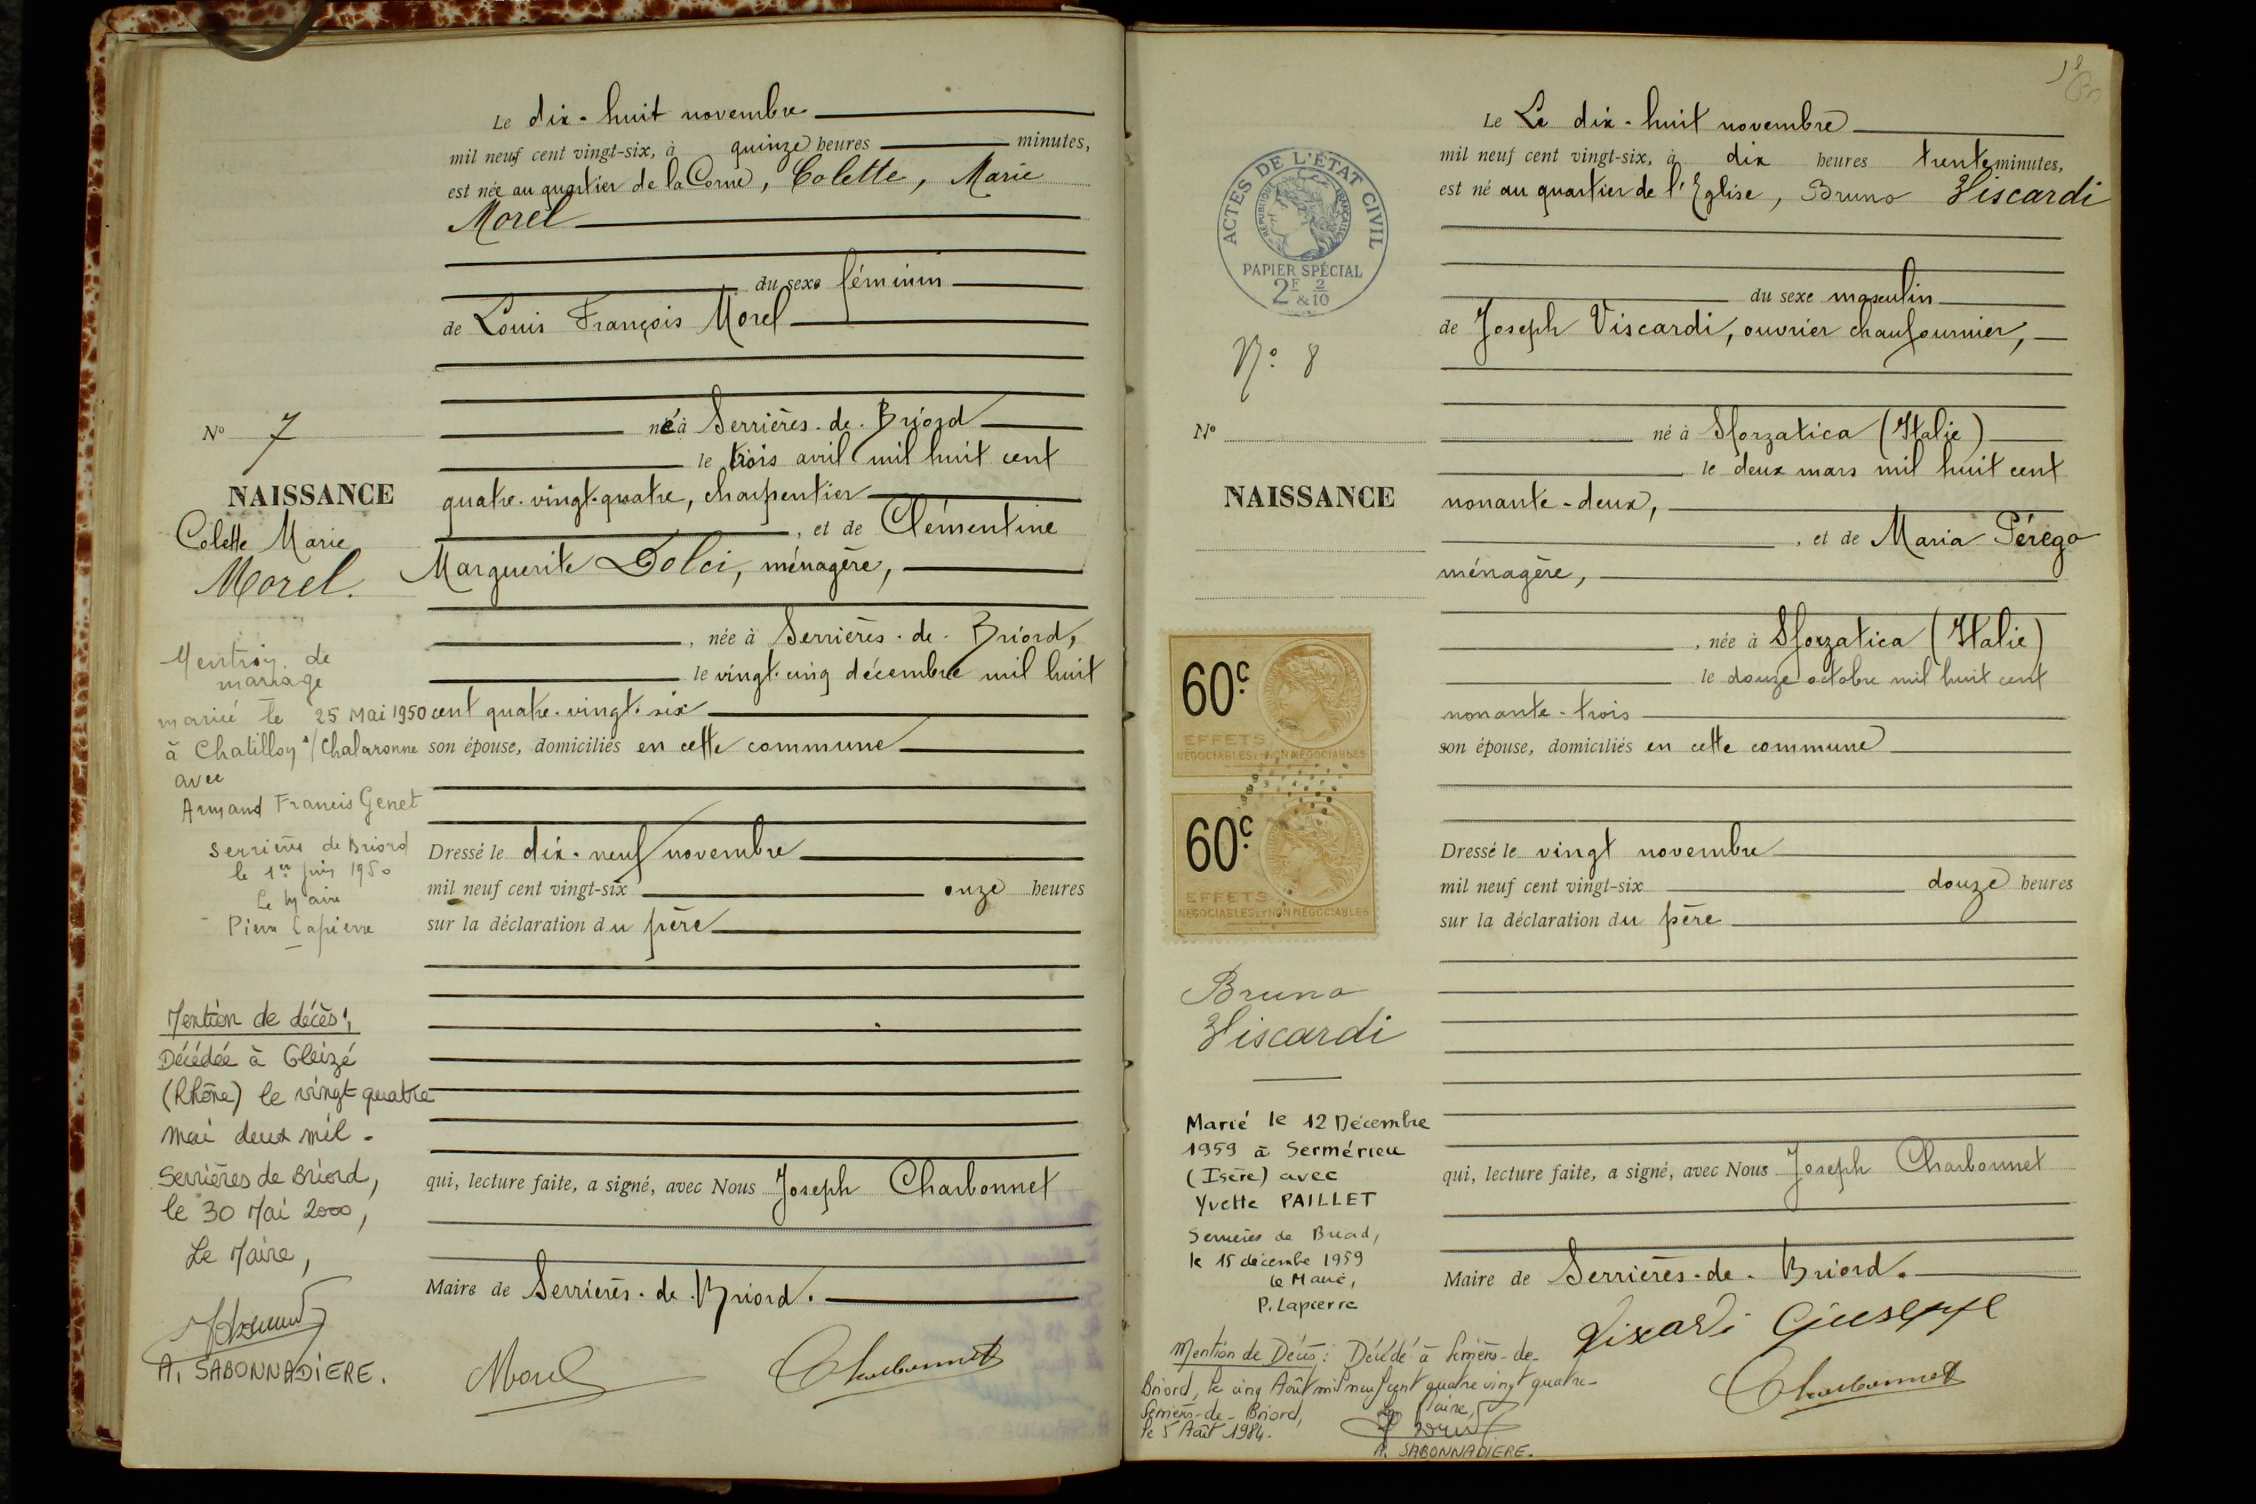 Le dix-huit novembre
mil neuf cent vingt-six, à quinze heures minutes,
est née au quartier de la Corne, Colette, Marie
Morel
du sexe féminin
de Louis François Morel
né à Serrières-de-Briord
le trois avril mil huit cent
quatre-vingt-quatre, charpentier
, et de Clémentine
Marguerite Dolci, ménagère,
, née à Serrières-de-Briord,
le vingt-cinq décembre mil huit
cent quatre-vingt-six
son épouse, domiciliés en cette commune
Dressé le dix-neuf novembre
mil neuf cent vingt-six onze heures
sur la déclaration du père
qui, lecture faite, a signé, avec Nous Joseph Charbonnet
Maire de Serrières-de-Briord.
Morel
Charbonnet
No 7
NAISSANCE
Colette Marie
Morel.
Mention de
mariage
mariée le 25 Mai 1950
à Chatillon s/Chalaronne
avec
Armand Francis Genet
Serrières de Briord
le 1er juin 1950
Le Maire
Pierre Lapierre
Mention de décès:
Décédée à Gleizé
(Rhône) le vingt quatre
mai deux mil.
Serrières de Briord,
le 30 Mai 2000,
Le Maire,
A. SABONNADIERE.
Le Le dix-huit novembre
mil neuf cent vingt-six, à dix heures trente minutes,
est né au quartier de l'Eglise, Bruno Viscardi
du sexe masculin
de Joseph Viscardi, ouvrier chaufournier,
né à Sforzatica (Italie)
le deux mars mil huit cent
nonante-deux,
, et de Maria Pérego
ménagère,
, née à Sforzatica (Italie)
le douze octobre mil huit cent
nonante-trois
son épouse, domiciliés en cette commune
Dressé le vingt novembre
mil neuf cent vingt-six douze heures
sur la déclaration du père
qui, lecture faite, a signé, avec Nous Joseph Charbonnet
Maire de Serrières-de-Briord.
Viscardi Giuseppe
Charbonnet
ACTES DE L'ÉTAT CIVIL
RÉPUBLIQUE FRANÇAISE
PAPIER SPÉCIAL
2F & 2/10
No. 8
No
NAISSANCE
60c
EFFETS
NÉGOCIABLES ET NON NÉGOCIABLES
60c
EFFETS
NÉGOCIABLES ET NON NÉGOCIABLES
Bruno
Viscardi
Marié le 12 Décembre
1959 à Sermérieu
(Isère) avec
Yvette PAILLET
Serrières de Briord,
le 15 décembre 1959
le Maire,
P. Lapierre
Mention de Décès: Décédé à Serrières-de-
Briord, le cinq Août mil neuf cent quatre vingt quatre-
Serrières-de-Briord,
le 5 Août 1984.
Le Maire,
A. SABONNADIERE.